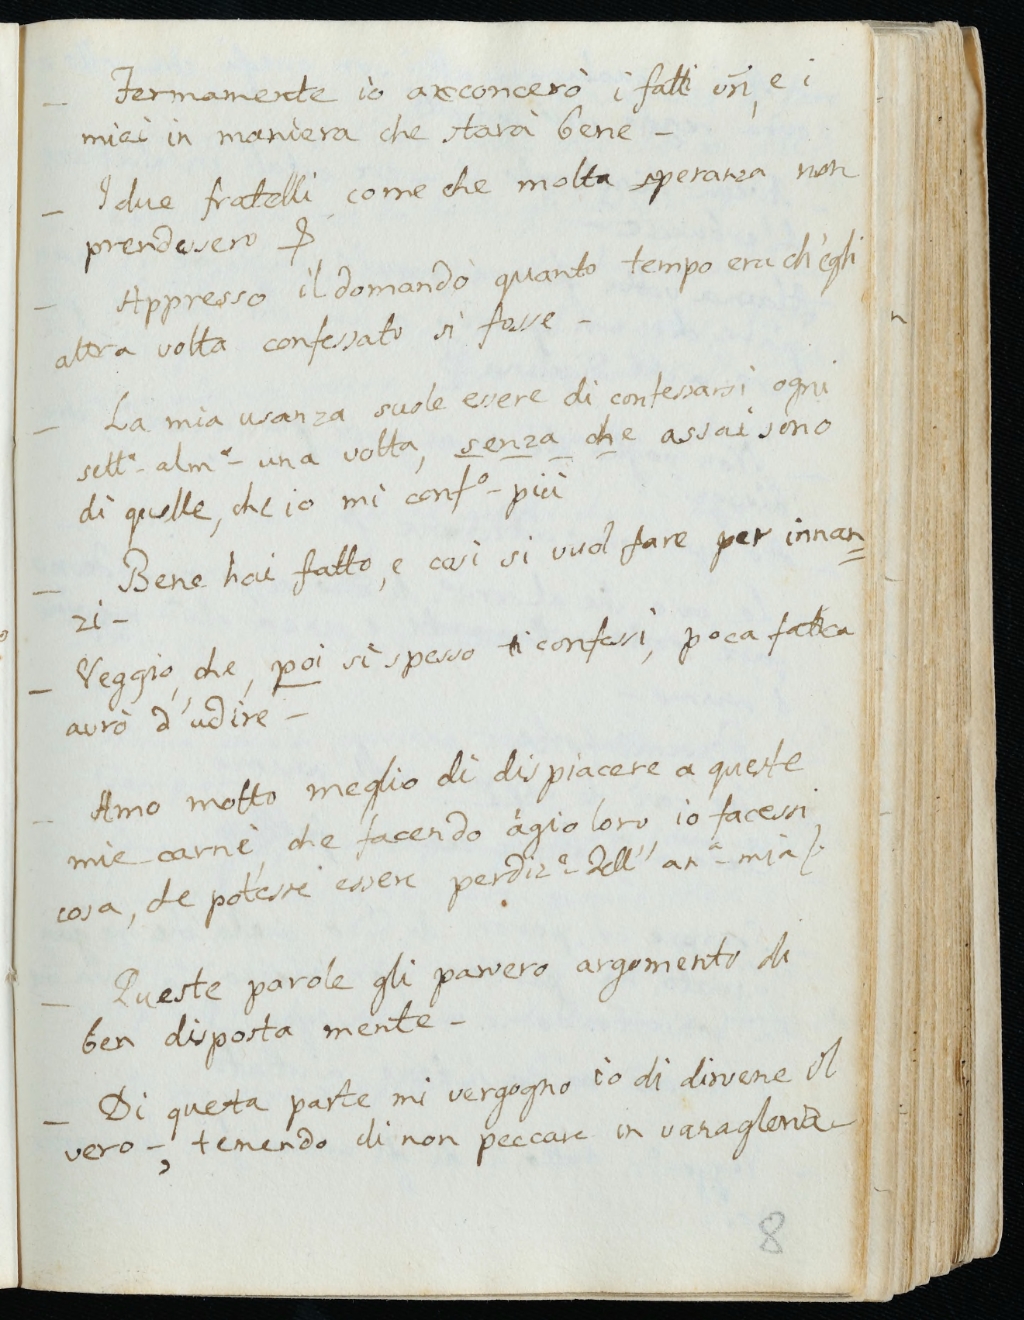 – Fermamente io acconcerò i fatti vr̃i, e i
miei in maniera che starà bene –
– I due fratelli come che molta speranza non
prendessero
– Appresso il domandò quanto tempo era ch'egli
altra volta confessato si fosse –
– La mia usanza suole essere di confessarsi ogni
settᵃ- almº- una volta, senza che assai sono
di quelle, che io mi confº- più
– Bene hai fatto, e così si vuol fare per innan=
zi –
– Veggio, che, poi sì spesso ti confessi, poca fatica
avrò d'udire –
– Amo molto meglio di dispiacere a queste
mie carni, che facendo agio loro io facessi
cosa, che potesse essere perdizᵉ- dell' anᵃ- mia
– Queste parole gli parvero argomento di
ben disposta mente –
– Di questa parte mi vergogno io di dirvene il
vero –, temendo di non peccare in vanagloria –
8